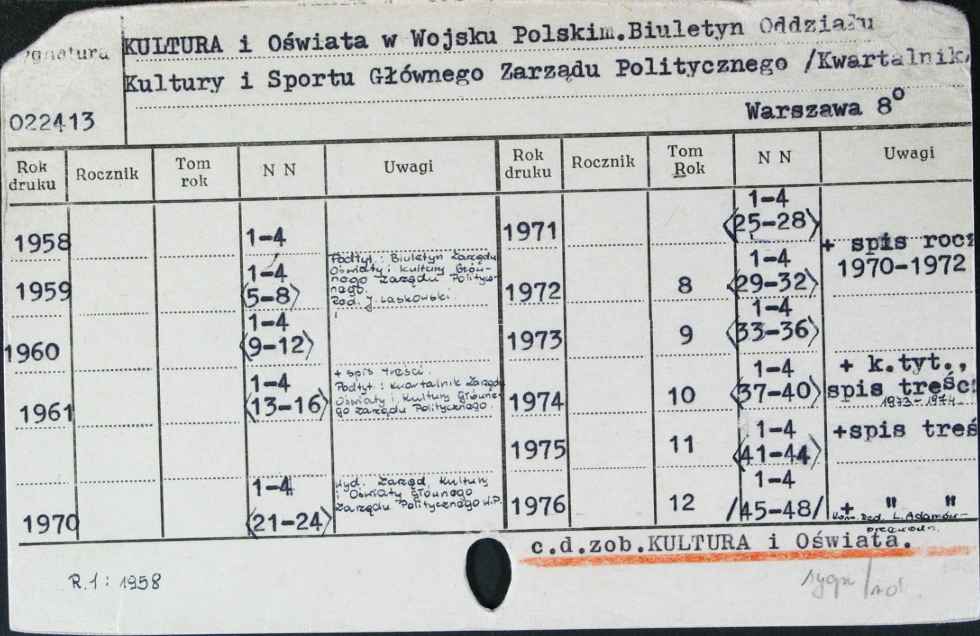 Sygnatura
KULTURA i Oświata w Wojsku Polskim.Biuletyn Oddziału
Kultury i Sportu Głównego Zarządu Politycznego /Kwartalnik/
022413
Warszawa 8°
Rok druku Rocznik Tom rok N N Uwagi Rok druku Rocznik Tom Rok N N Uwagi
1958 1-4
1959 1-4 <5-8> Podtyt.: Biuletyn Zarządu
Oświaty i Kultury Głów-
nego Zarządu Politycz-
nego.
Red. J. Laskowski.
1960 1-4 <9-12>
1961 1-4 <13-16> + spis treści.
Podtyt.: Kwartalnik Zarządu
Oświaty i Kultury Główne-
go Zarządu Politycznego.
1970 1-4 <21-24> Wyd. Zarząd Kultury
i Oświaty Głównego
Zarządu Politycznego W.P.
1971 1-4 <25-28>
+ spis rocz
1972 8 1-4 <29-32> 1970-1972
1973 9 1-4 <33-36>
1974 10 1-4 <37-40> + k.tyt.,
spis treści
1973-1974
1975 11 1-4 <41-44> +spis treś
1976 12 1-4 /45-48/ + " "
Kom. Red. L. Adamów-
c.d.zob.KULTURA i Oświata.
R.1: 1958